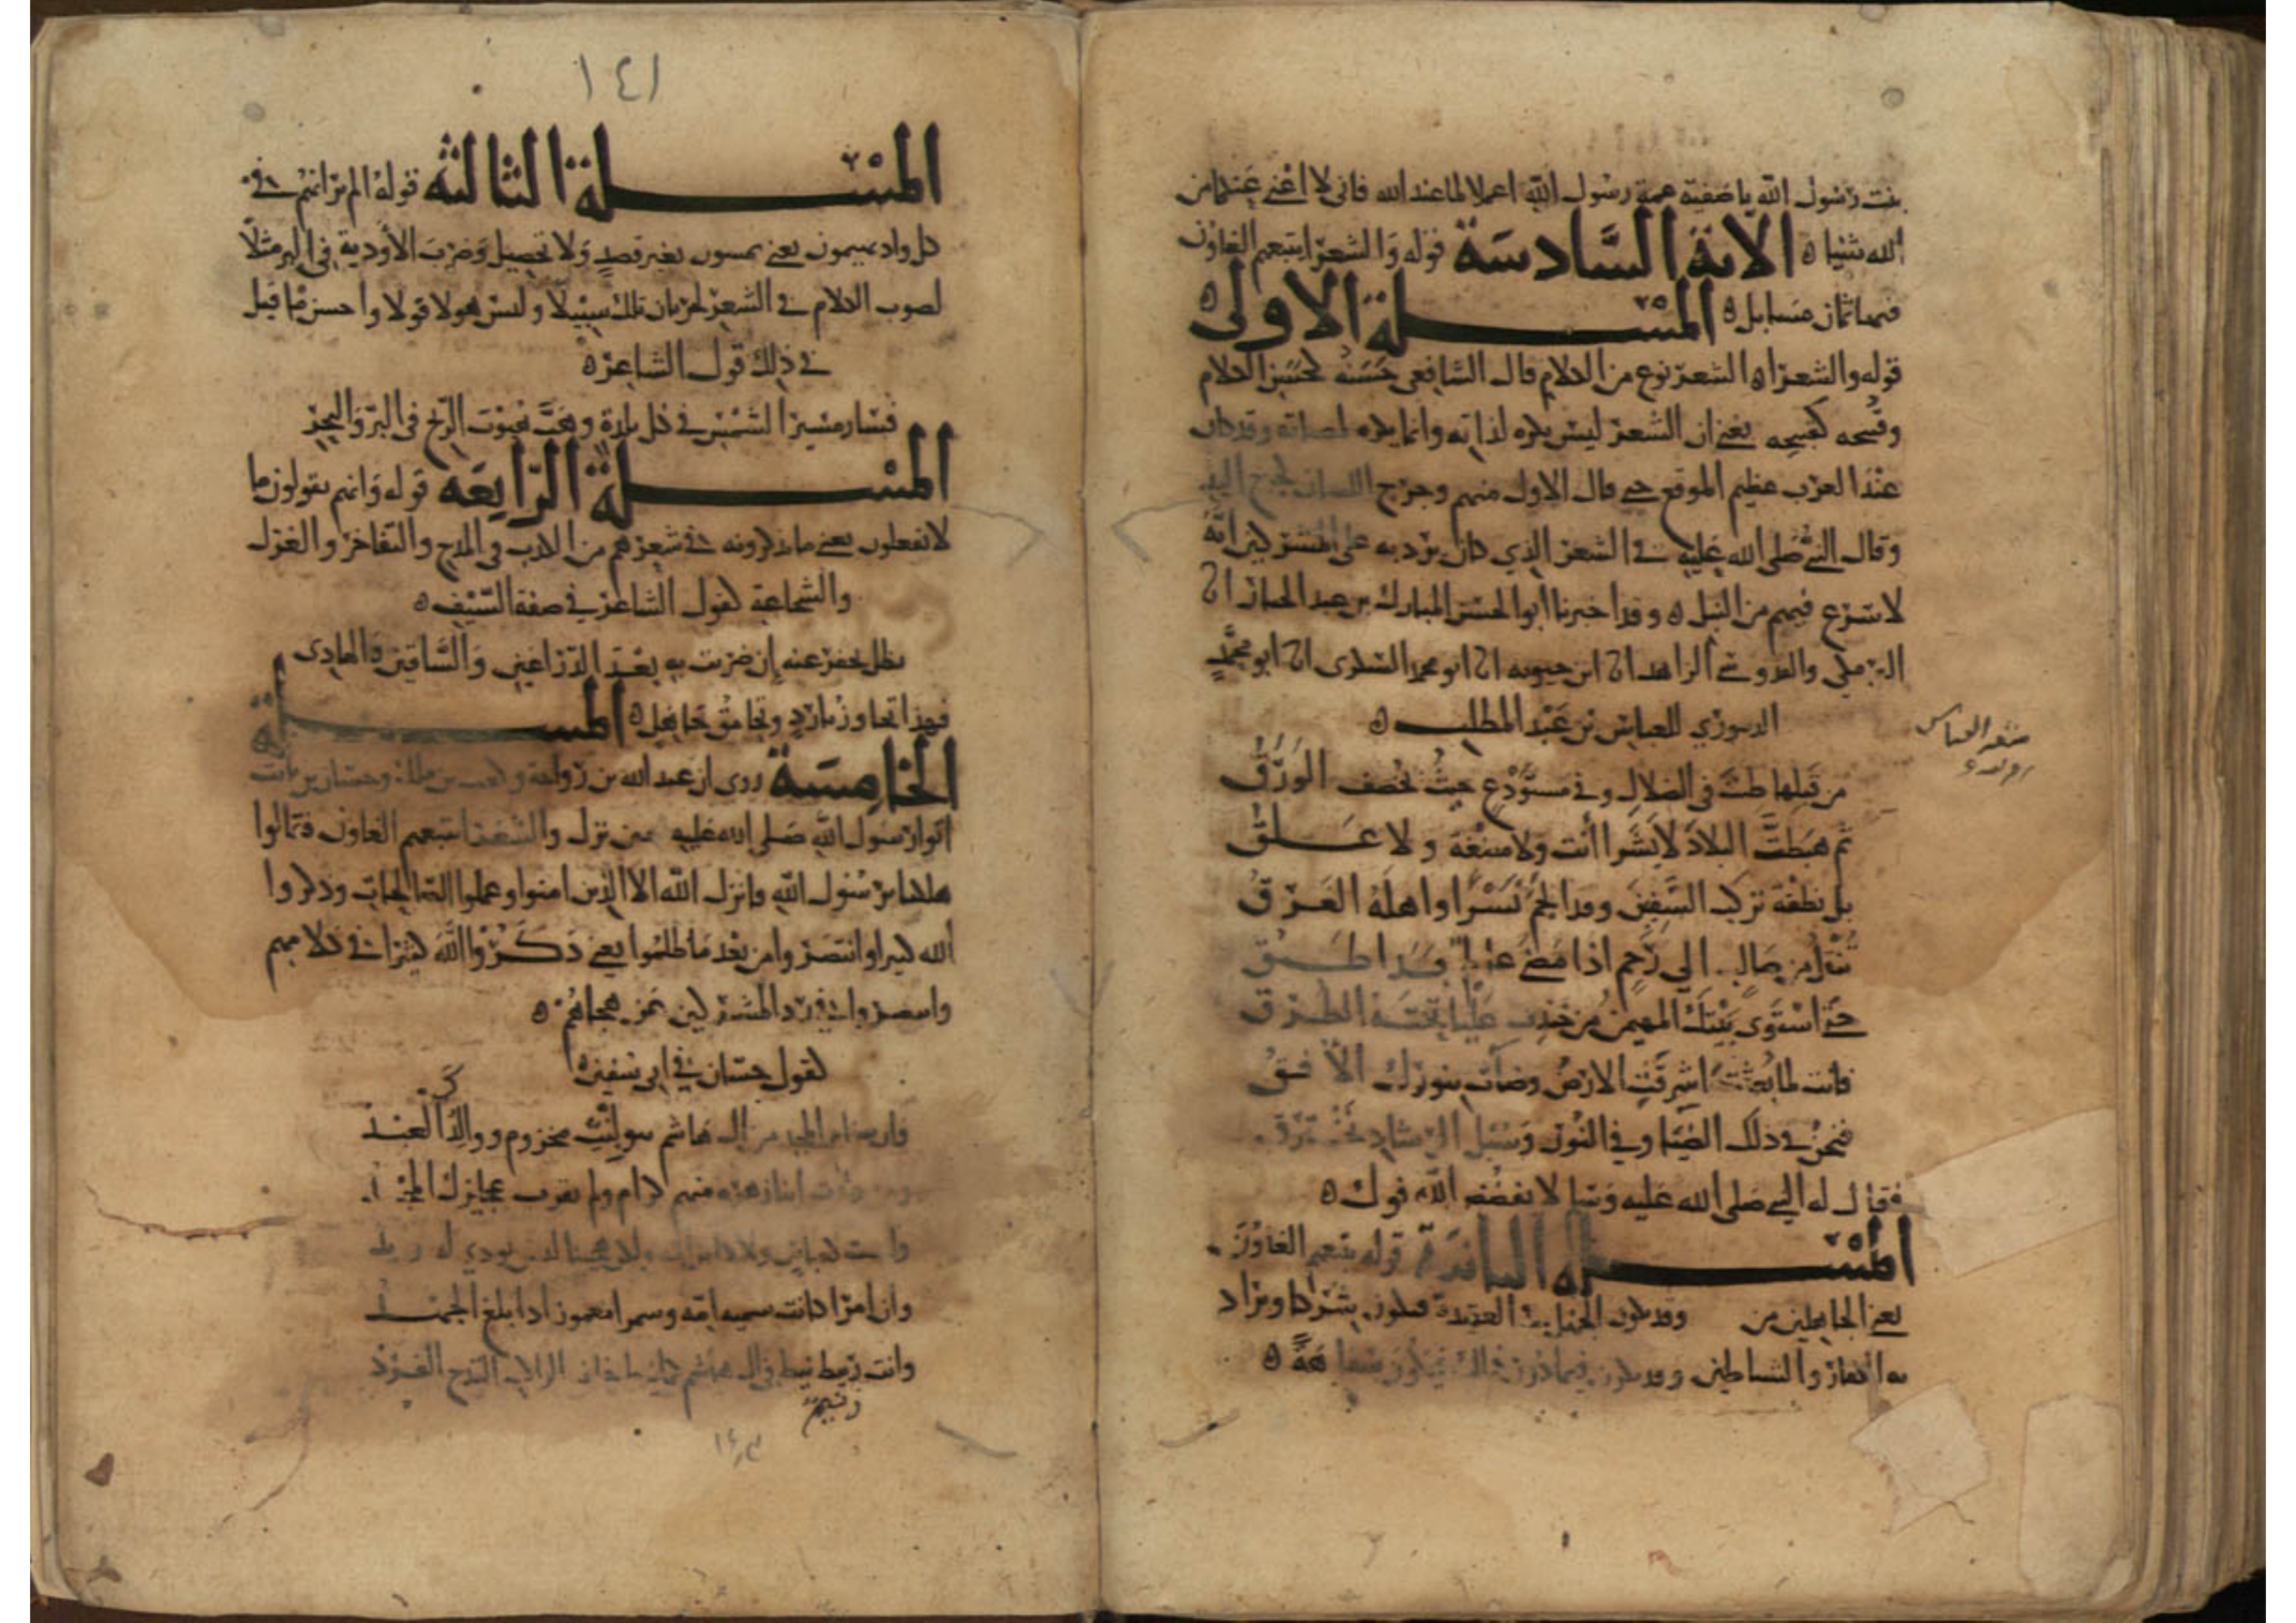 بنت رسول الله يا صفية عمة رسول الله اعملا لما عند الله فاني لا اغني عنكما من
الله شيا ه الاية السادسة قوله والشعرا يتبعهم الغاوون
فيها ثمان مسايل ه المسلة الاولى ه
قوله والشعرا ه الشعر نوع من الكلام قال الشافعي حسنه كحسن الكلام
وقبيحه كقبيحه يعني ان الشعر ليس يكره لذاته وانما يكره وقد كان
عند العرب عظيم الموقع حتى قال الاول منهم وجرح اللسان كجرح اليد
وقال النبي صلى الله عليه في الشعر الذي كان يرد به على المشركين انه
لاسرع فيهم من النبل ه وقد اخبرنا ابو الحسن المبارك بن عبد الجبار انا
البرمكي والقزويني الزاهد انا ابن حيويه انا ابو محمد السكري انا ابو محمد
الدينوري للعباس بن عبد المطلب ه
شعر العباس
من قبلها طبت في الظلال وفي مستودع حيث يخصف الورق
ثم هبطت البلاد لا بشرا انت ولا مضغة ولا علق
بل نطفة تركب السفين وقد الجم نسرا واهله الغرق
تنقل من صالب الى رحم اذا مضى عالم بدا طبق
حتى استوى بيتك المهيمن من خندف عليا تحتها النطق
وانت لما بعثت اشرقت الارض وضات بنورك الافق
فنحن في ذلك الضيا وفي النور وسبل الرشاد نخترق
فقال له النبي صلى الله عليه وسلم لا يفضض الله فوك ه
المسلة الثانية قوله يتبعهم الغاوون
يعني الجاهلين من وقد يكون الجهل في العقيدة فيكون شركا ويراد
به الكفار والشياطين وقد يكون فيما دون ذلك فيكون سفاهة ه
١٤١
المسلة الثالثة قوله الم تر انهم في
كل واد يهيمون يعني يمشون بغير قصد ولا تحصيل وضرب الاودية في البر مثلا
لصوب الكلام في الشعر لجريان تلك سيلا وليس هولا قولا واحسن ما قيل
في ذلك قول الشاعر ه
فسار مسير الشمس في كل بلدة وهب هبوب الريح في البر والبحر
المسلة الرابعة قوله وانهم يقولون ما
لا يفعلون يعني ما يذكرونه في شعرهم من الكذب في المدح والتفاخر والغزل
والشجاعة كقول الشاعر في صفة السيف ه
تظل تحفر عنه ان ضربت به بعد الذراعين والساقين والهادي
فهذا تجاوز بارد وتحامق جاهل ه المسلة
الخامسة روى ان عبد الله بن رواحة وكعب بن مالك وحسان بن ثابت
اتوا رسول الله صلى الله عليه حين نزل والشعرا يتبعهم الغاوون فقالوا
هلكنا يرسول الله فانزل الله الا الذين امنوا وعملوا الصالحات وذكروا
الله كثيرا وانتصروا من بعد ما ظلموا يعني ذكروا الله كثيرا في كلامهم
وانتصروا في رد المشركين عن هجاهم ه
كقول حسان في ابي سفين ه
وان سنام المجد من ال هاشم بنو بنت مخزوم ووالدك العبد
وما ولدت ابنا زهرة منهم كرام ولم يقرب عجايزك المجد
وان امرا كانت سمية امه وسمرا مغموز اذا بلغ الجهد
وانت زنيم نيط في ال هاشم كما نيط خلف الراكب القدح الفرد
زنيم